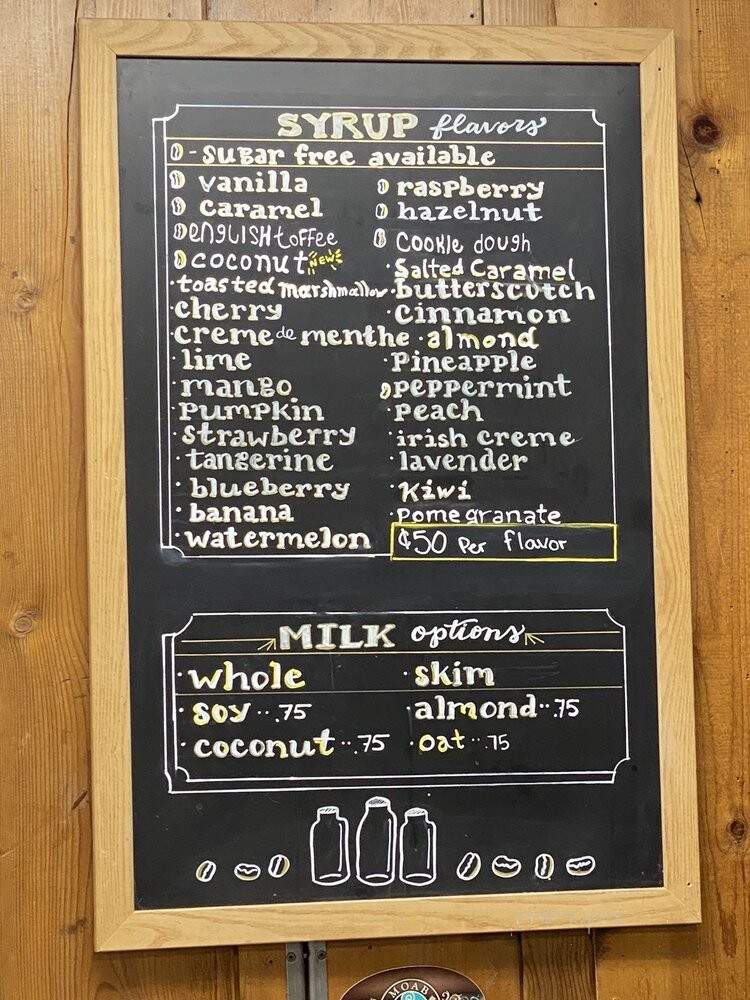 SYRUP flavors
- sugar free available
vanilla
raspberry
caramel
hazelnut
ENGLISH toffee
Cookie dough
coconut NEW
Salted Caramel
·toasted marshmallow
·butterscotch
·cherry
·cinnamon
·creme de menthe
·almond
·lime
·Pineapple
·mango
peppermint
·pumpkin
·peach
·strawberry
·irish creme
·tangerine
·lavender
·blueberry
·Kiwi
·banana
·Pomegranate
·watermelon
¢50 Per flavor
MILK options
·whole
·skim
·soy ·· .75
·almond ·· .75
·coconut ·· .75
·oat ·· .75
MOAB